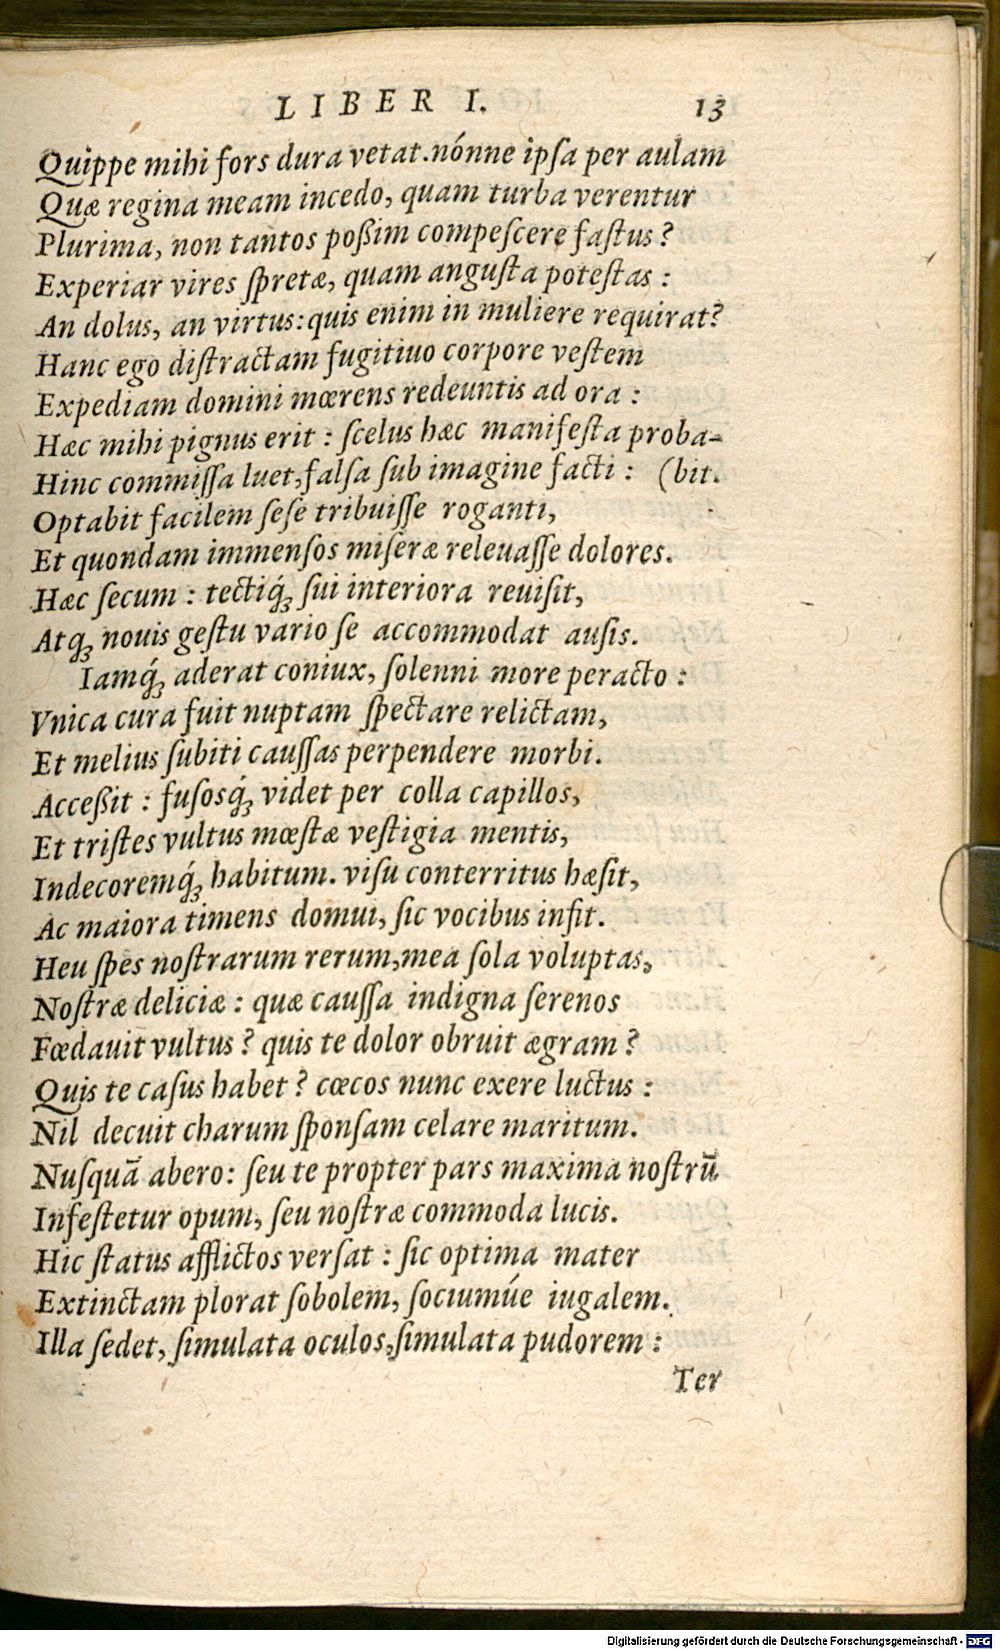 LIBER I. 13
Quippe mihi fors dura vetat. nónne ipſa per aulam
Quæ regina meam incedo, quam turba verentur
Plurima, non tantos poßim compeſcere faſtus?
Experiar vires ſpretæ, quam anguſta poteſtas:
An dolus, an virtus: quis enim in muliere requirat?
Hanc ego diſtractam fugitiuo corpore veſtem
Expediam domini mœrens redeuntis ad ora:
Hæc mihi pignus erit: ſcelus hæc manifeſta proba-
Hinc commiſſa luet, falſa ſub imagine facti: (bit.
Optabit facilem ſeſe tribuiſſe roganti,
Et quondam immenſos miſeræ releuaſſe dolores.
Hæc ſecum: tectiq́ꝫ ſui interiora reuiſit,
Atqꝫ nouis geſtu vario ſe accommodat auſis.
Iamq́ꝫ aderat coniux, ſolenni more peracto:
Vnica cura fuit nuptam ſpectare relictam,
Et melius ſubiti cauſſas perpendere morbi.
Acceßit: fuſosq́ꝫ videt per colla capillos,
Et triſtes vultus mœſtæ veſtigia mentis,
Indecoremq́ꝫ habitum. viſu conterritus hæſit,
Ac maiora timens domui, ſic vocibus infit.
Heu ſpes noſtrarum rerum, mea ſola voluptas,
Noſtræ deliciæ: quæ cauſſa indigna ſerenos
Fœdauit vultus? quis te dolor obruit ægram?
Quis te caſus habet? cœcos nunc exere luctus:
Nil decuit charum ſponſam celare maritum.
Nuſquā abero: ſeu te propter pars maxima noſtrū
Infeſtetur opum, ſeu noſtræ commoda lucis.
Hic ſtatus afflictos verſat: ſic optima mater
Extinctam plorat ſobolem, ſociumúe iugalem.
Illa ſedet, ſimulata oculos, ſimulata pudorem:
Ter
Digitalisierung gefördert durch die Deutsche Forschungsgemeinschaft - DFG